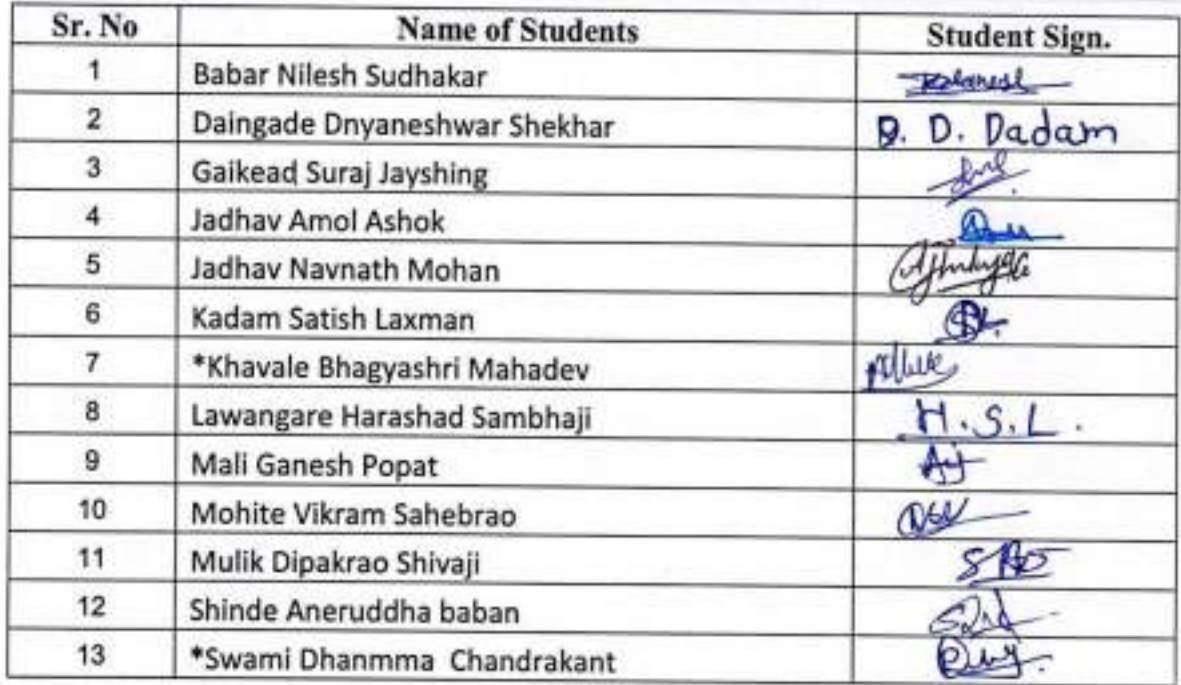 Sr. No Name of Students Student Sign.
1 Babar Nilesh Sudhakar
2 Daingade Dnyaneshwar Shekhar D. D. Dadam
3 Gaikead Suraj Jayshing
4 Jadhav Amol Ashok
5 Jadhav Navnath Mohan
6 Kadam Satish Laxman
7 *Khavale Bhagyashri Mahadev
8 Lawangare Harashad Sambhaji H.S.L.
9 Mali Ganesh Popat
10 Mohite Vikram Sahebrao
11 Mulik Dipakrao Shivaji
12 Shinde Aneruddha baban
13 *Swami Dhanmma Chandrakant